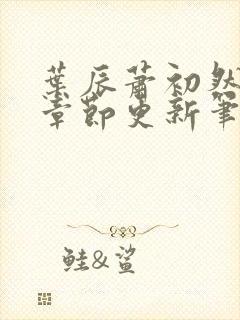 葉辰蕭初然
章節更新筆
鮭&鯊